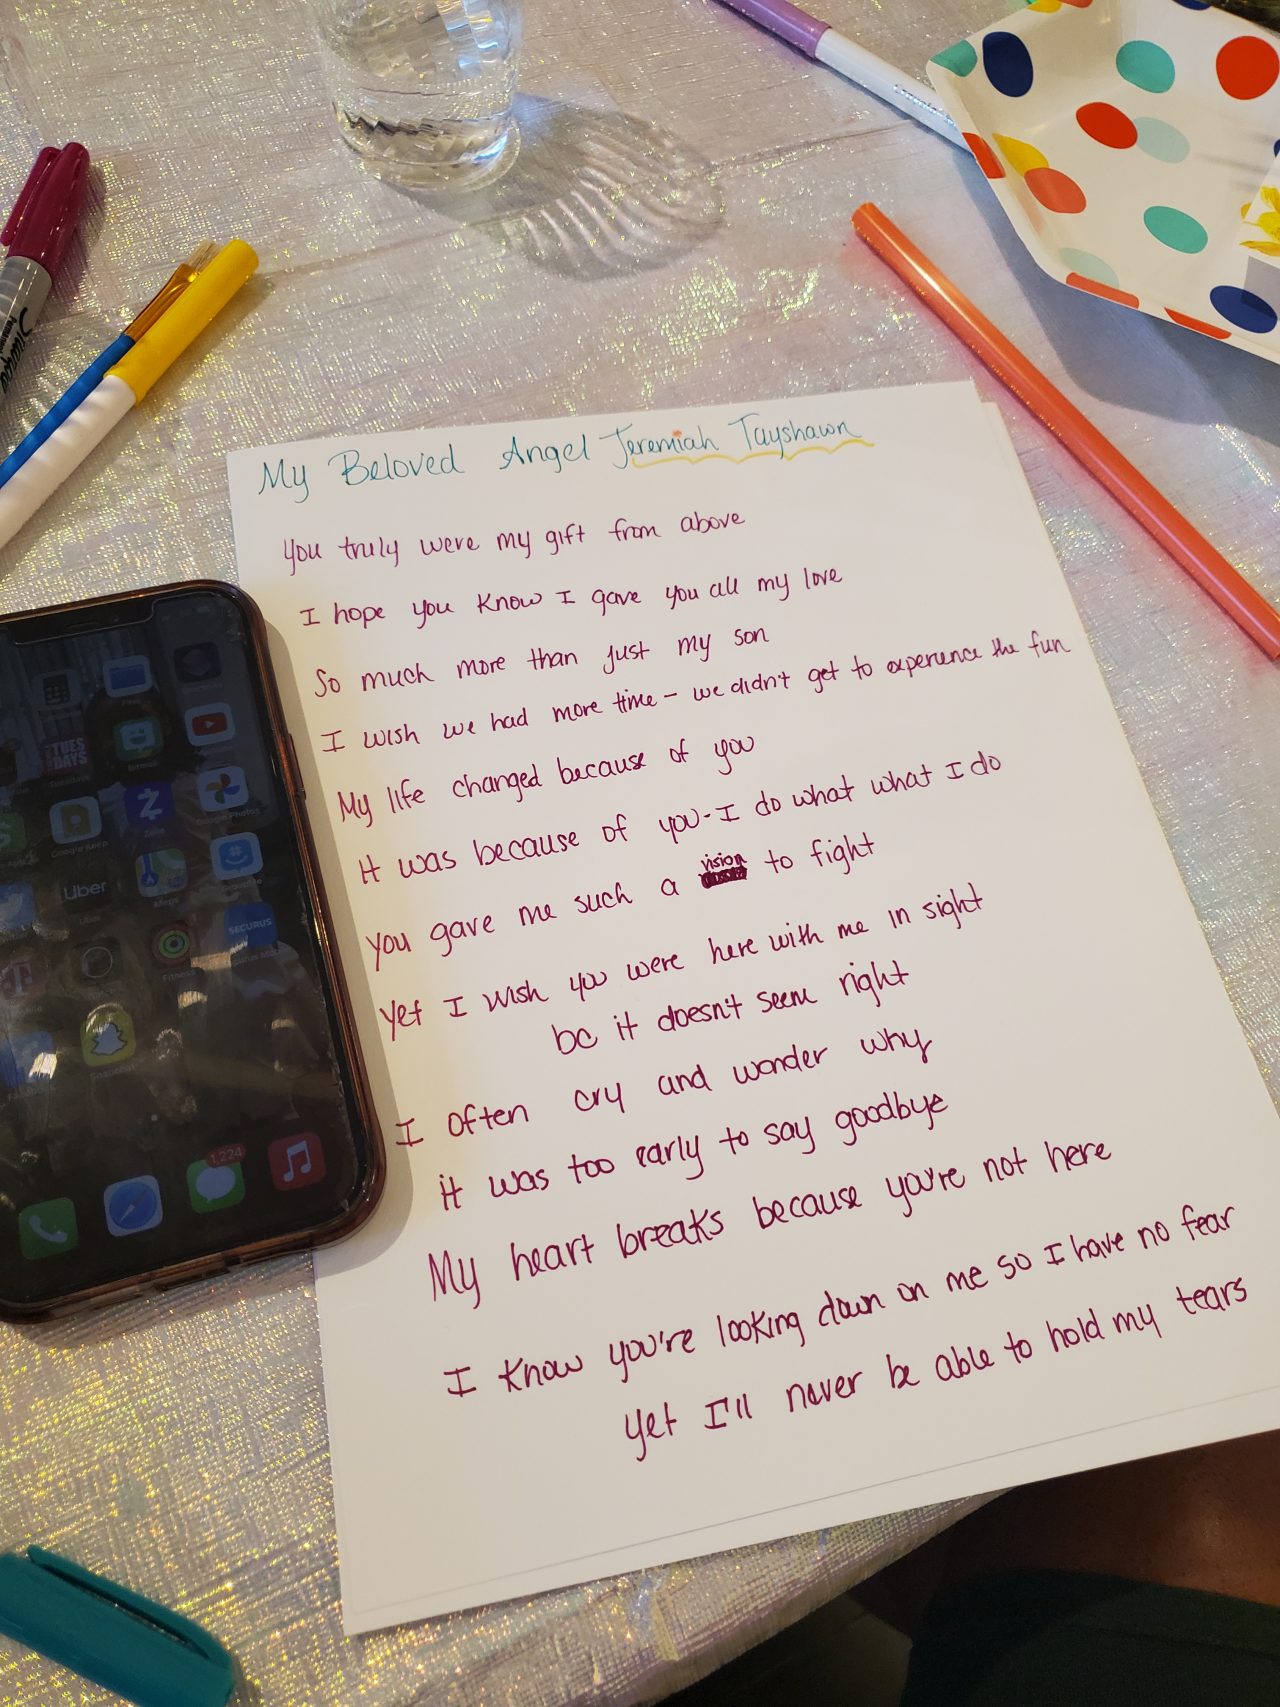 My Beloved Angel Jeremiah Tayshawn
you truly were my gift from above
I hope you know I gave you all my love
So much more than just my son
I wish we had more time - we didn't get to experience the fun
My life changed because of you
It was because of you - I do what what I do
You gave me such a vision to fight
Yet I wish you were here with me in sight
bc it doesn't seem right
I often cry and wonder why
it was too early to say goodbye
My heart breaks because you're not here
I know you're looking down on me so I have no fear
Yet I'll never be able to hold my tears
Sharpie
TUES
DAYS
YouTube
Zelle
Google Keep
Uber
Maps
SECURUS
Fitness
Snapchat
1,224